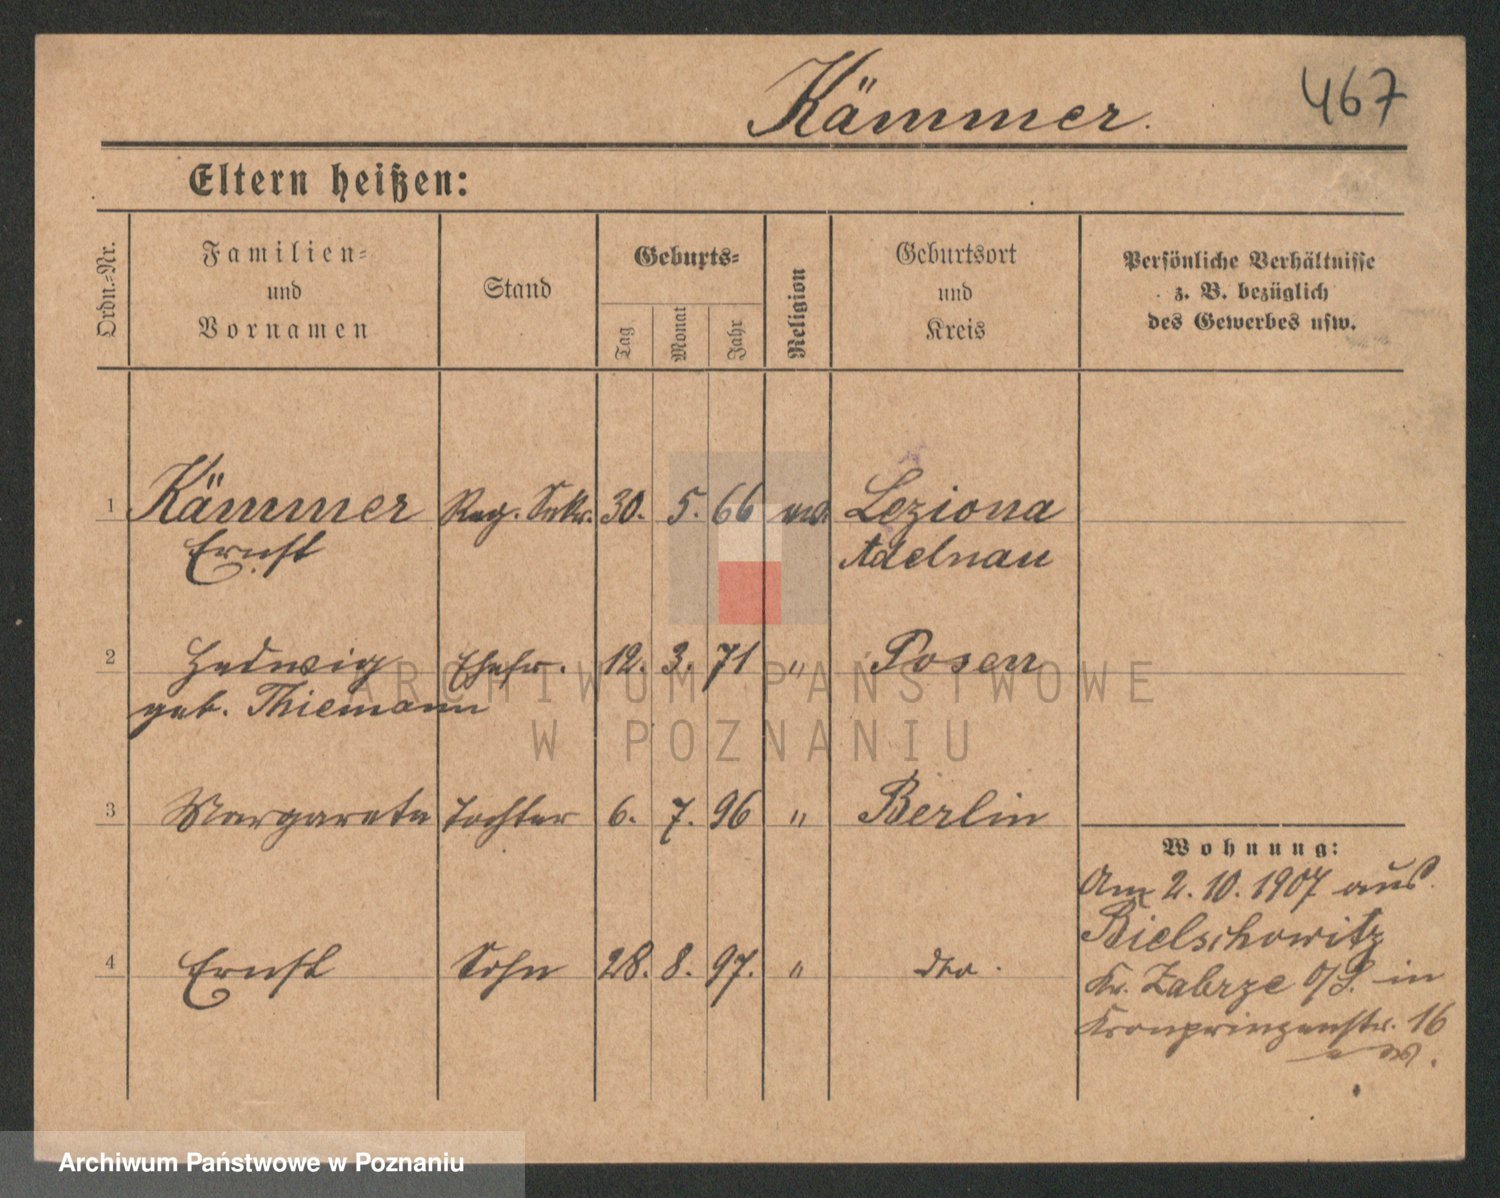 Kämmer.
467
Eltern heißen:
Ordn.-Nr.
Familien-
und
Vornamen
Stand
Geburts-
Tag
Monat
Jahr
Religion
Geburtsort
und
Kreis
Persönliche Verhältnisse
z. B. bezüglich
des Gewerbes usw.
1 Kämmer Reg. Sekr. 30. 5. 66 Leziona
Ernst Adelnau
2 Hedwig Ehefr. 12. 3. 71 " Posen
geb. Thiemann
3 Margarete Tochter 6. 7. 96 " Berlin
4 Ernst Sohn 28. 8. 97. " dto.
Wohnung:
Am 2. 10. 1907 aus
Bielschowitz
Kr. Zabrze O/S. in
Kronprinzenstr. 16
ARCHIWUM PAŃSTWOWE
W POZNANIU
Archiwum Państwowe w Poznaniu